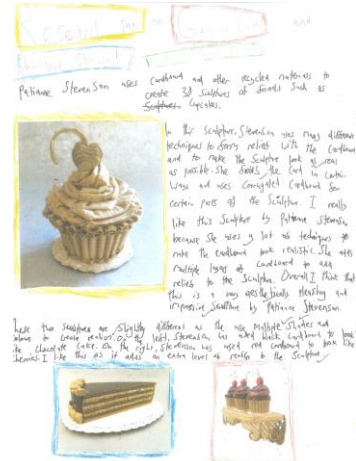 Research
and
Patianne Stevenson uses Cardboard and other recycled materials to
create 3D sculptures of foods such as
Sculptures Cupcakes.
In this Sculpture, Stevenson uses many different
techniques to form relief with the Cardboard
and to make the Sculpture look as real
as possible. She folds the Card in Certain
ways and uses Corrugated Cardboard for
certain parts of the Sculpture. I really
like this Sculpture by Patianne Stevenson
because She uses a lot of techniques to
make the cardboard look realistic. She adds
multiple layers of cardboard to add
relief to the Sculpture. Overall I think that
this is a very aesthetically pleasing and
impressive Sculpture by Patianne Stevenson.
These two sculptures are Slightly different as the use Multiple Shades and
colours to create realism. On the left, Stevenson has used black Cardboard to look
like chocolate Cake. On the right, Stevenson has used red Cardboard to look like
cherries. I like this as it adds an extra level of realism to the Sculpture.